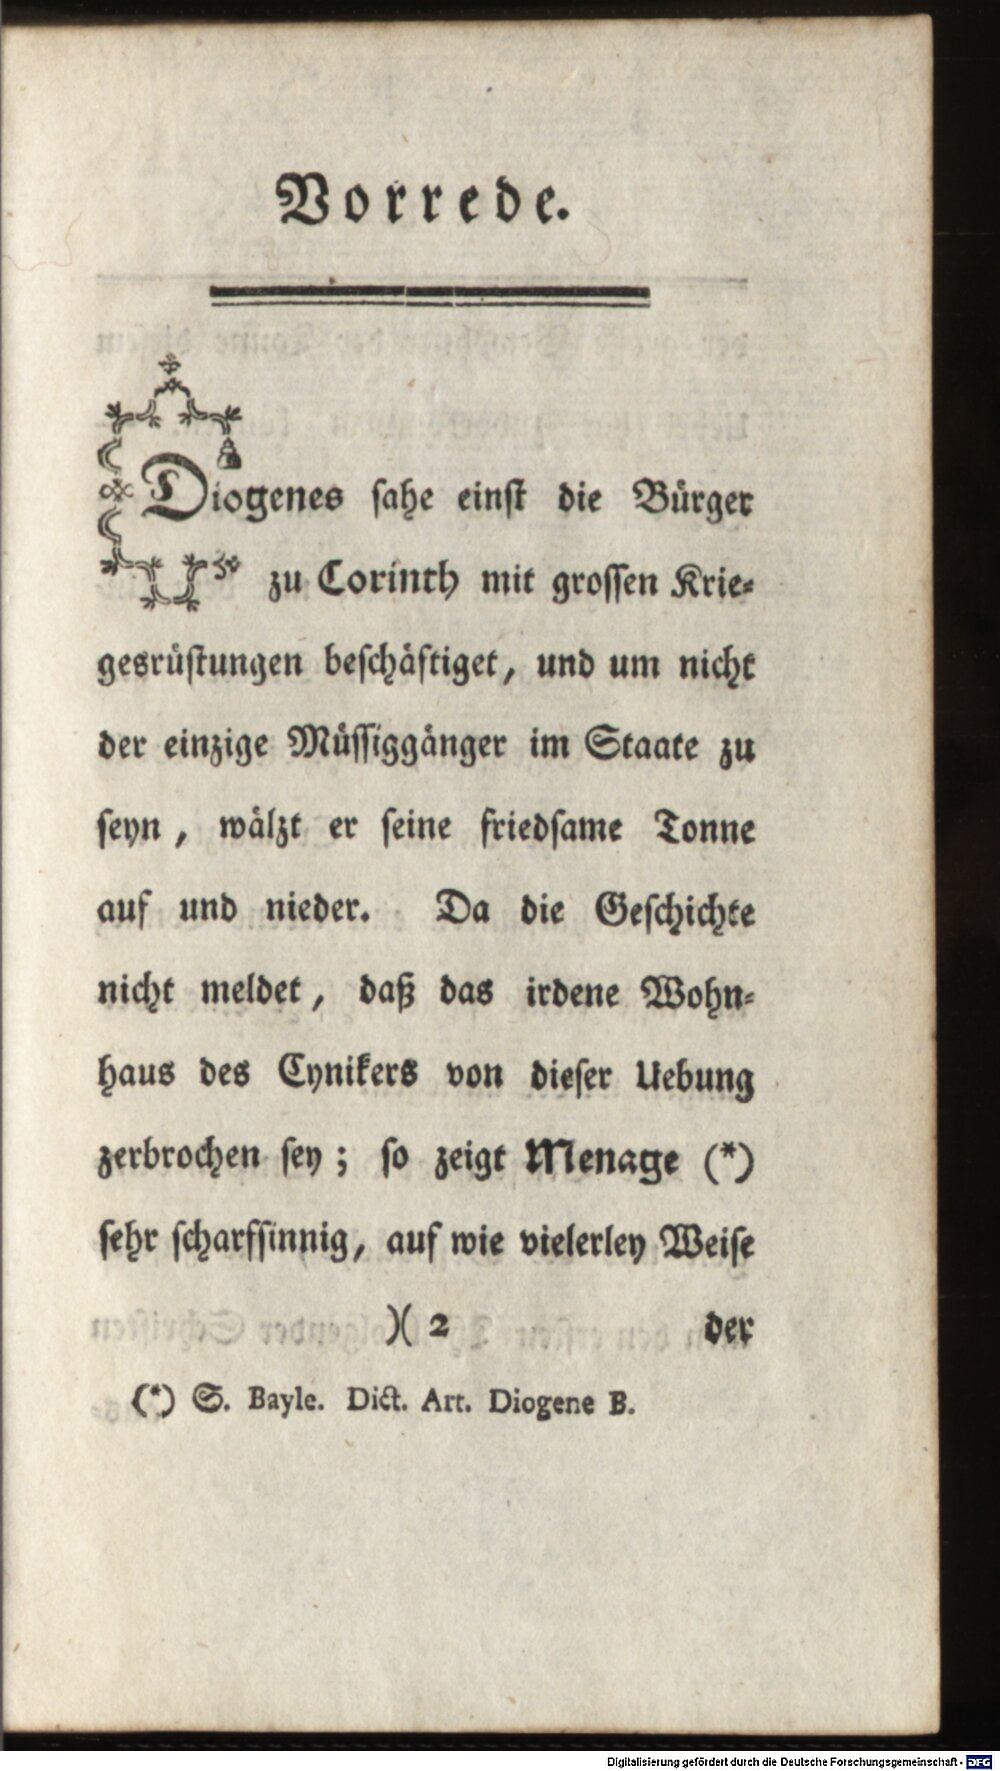 Vorrede.
Diogenes sahe einst die Bürger
zu Corinth mit grossen Krie-
gesrüstungen beschäftiget, und um nicht
der einzige Müssiggänger im Staate zu
seyn, wälzt er seine friedsame Tonne
auf und nieder. Da die Geschichte
nicht meldet, daß das irdene Wohn-
haus des Cynikers von dieser Uebung
zerbrochen sey; so zeigt Menage (*)
sehr scharfsinnig, auf wie vielerley Weise
)( 2 der
(*) S. Bayle. Dict. Art. Diogene B.
Digitalisierung gefördert durch die Deutsche Forschungsgemeinschaft - DFG